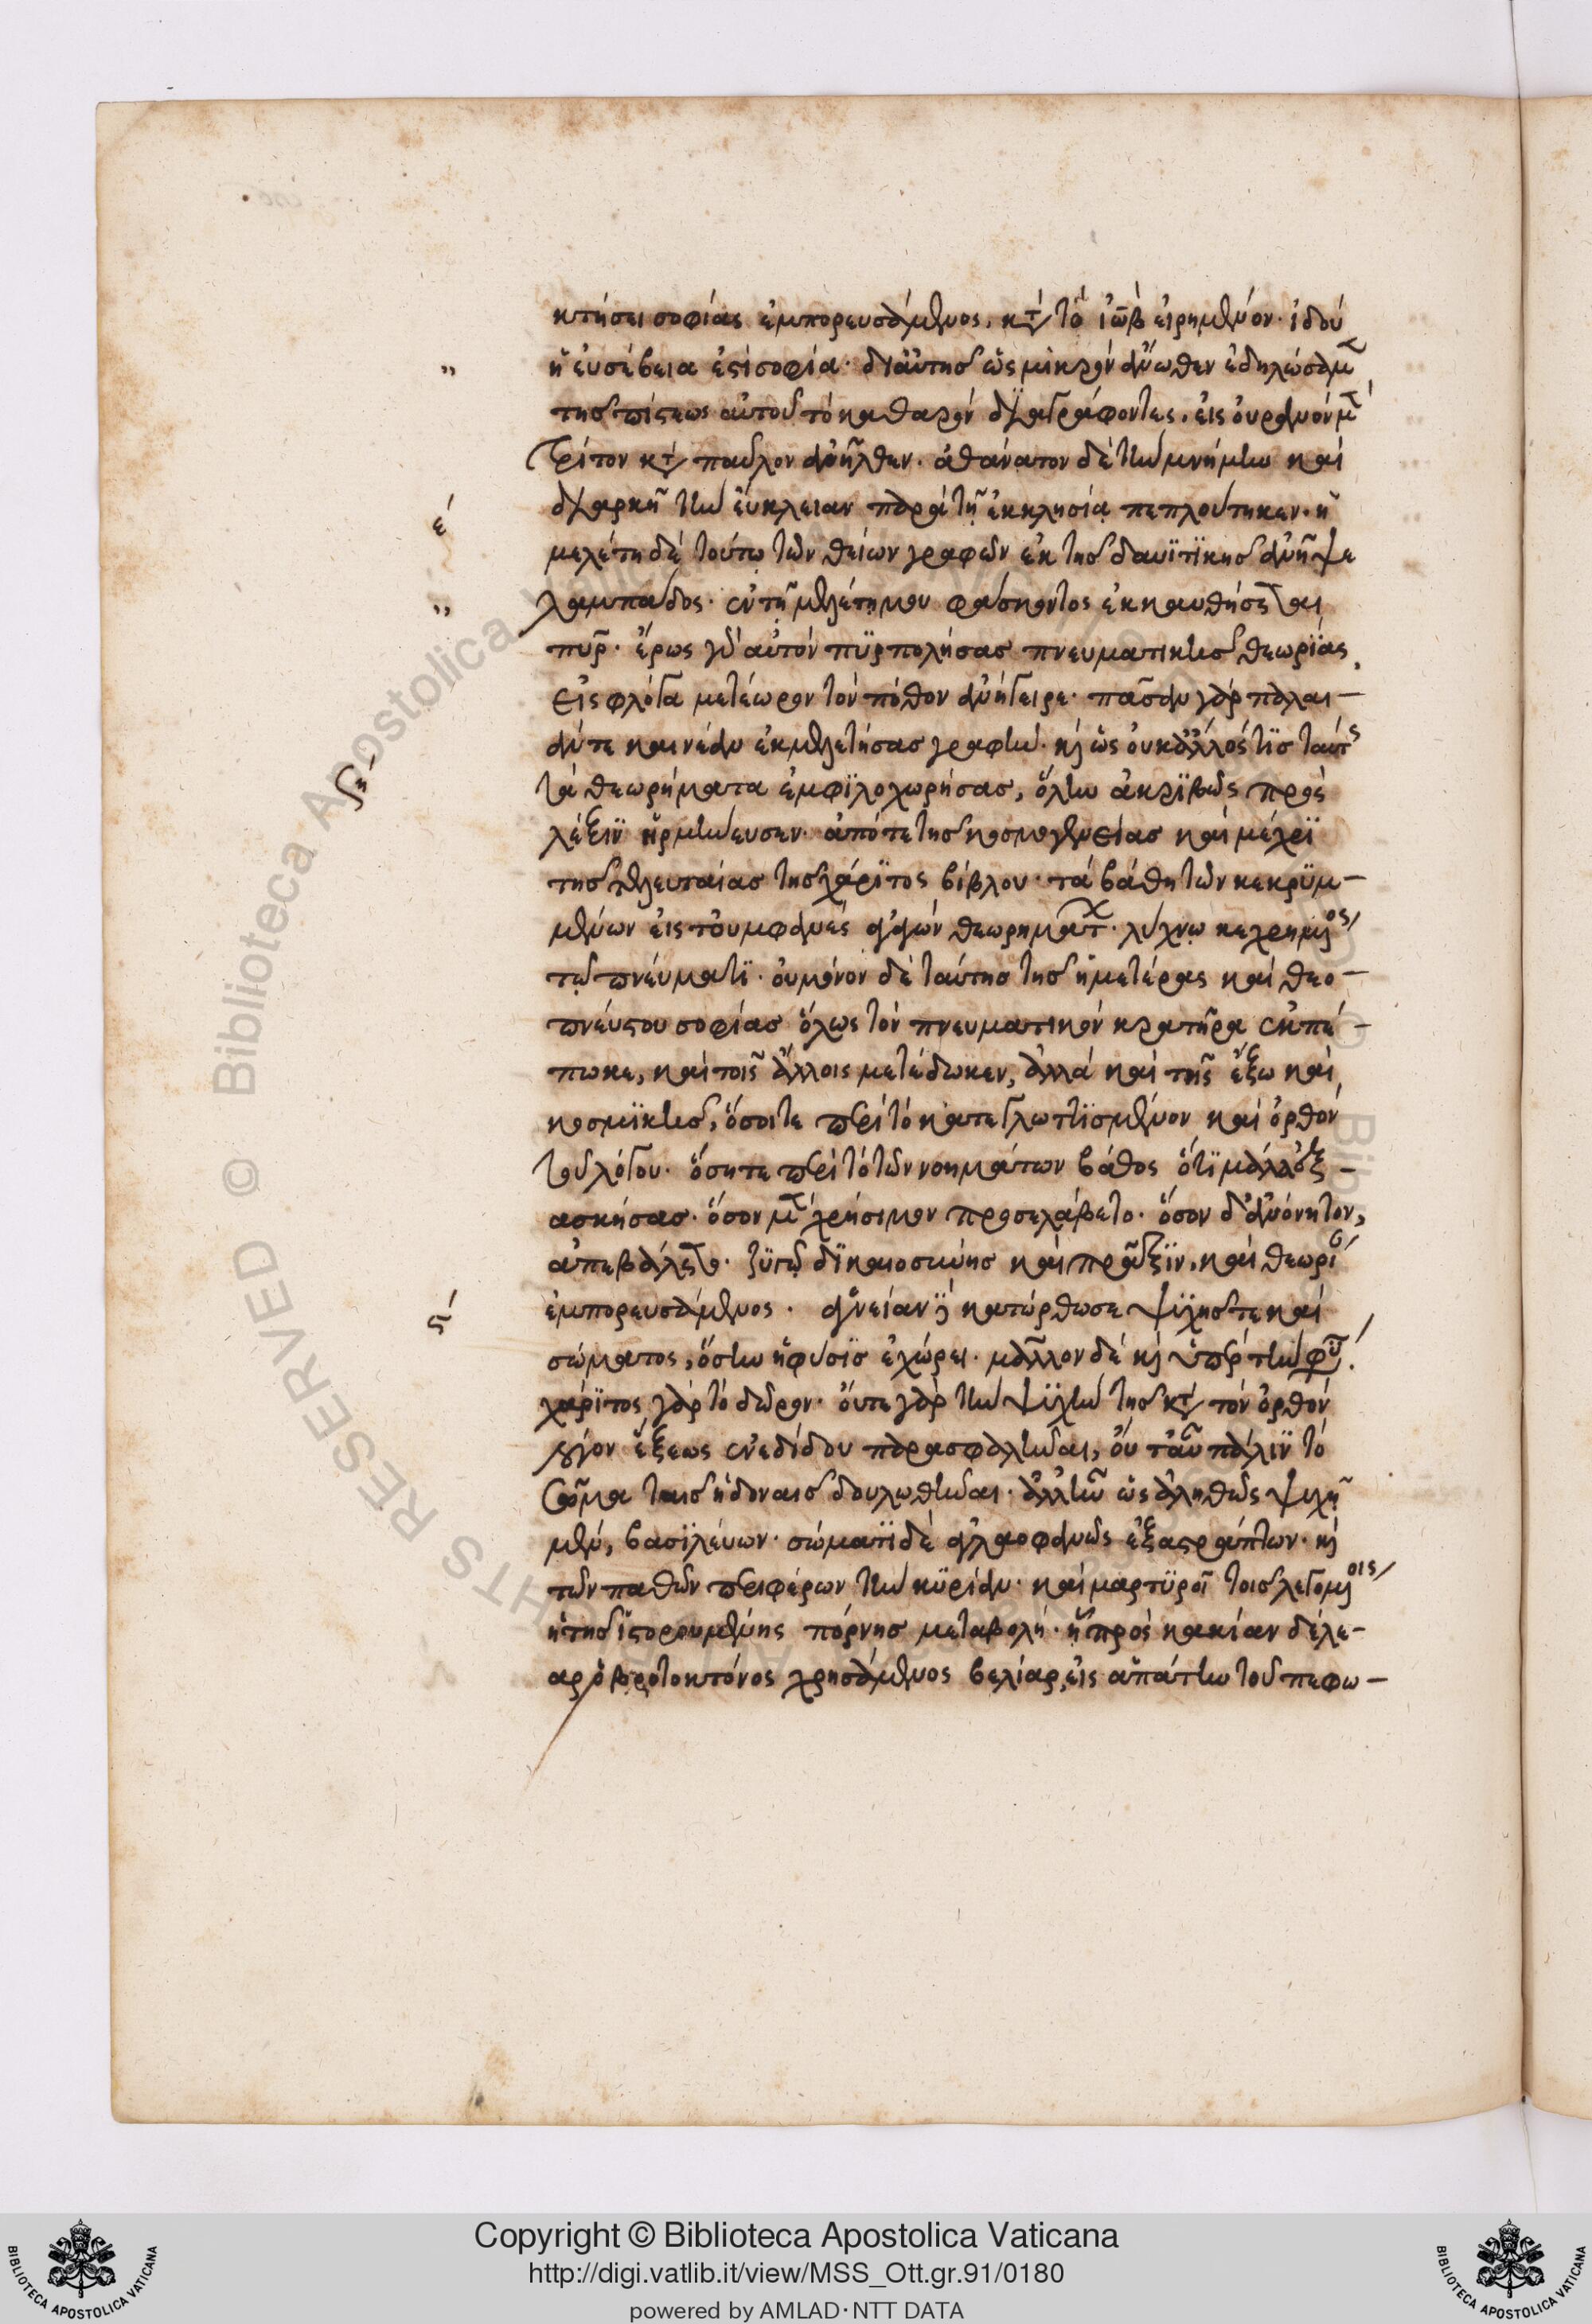 κτήσει σοφίας ἐμπορευσάμενος, κατὰ τὸ ἰὼβ εἰρημένον· ἰδού
ἡ εὐσέβεια ἐστὶ σοφία· διαὐτῆς ὡς μικρὸν ἄνωθεν ἐδηλώσαμεν
τῆς πίστεως αὐτοῦ τὸ καθαρὸν διαγράφοντες. εἰς οὐρανὸν μὲν
τρίτον κατὰ παῦλον ἀνῆλθεν. ἀθάνατον δὲ τὴν μνήμην καὶ
διαρκῆ τὴν εὔκλειαν παρὰ τῇ ἐκκλησίᾳ πεπλούτηκεν· ἡ
ε΄
μελέτη δὲ τούτῳ τῶν θείων γραφῶν ἐκ τῆς δαυϊτϊκῆς ἀνῆψε
λαμπάδος· ἐν τῇ μελέτῃ μου φάσκοντος ἐκκαυθήσεται
πῦρ· ἔρως γὰρ αὐτὸν πϋρπολήσας πνευματικῆς θεωρίας,
εἰς φλόγα μετέωρον τὸν πόθον ἀνήγειρε· πᾶσαν γὰρ παλαι-
άν τε καὶ νέαν ἐκμελετήσας γραφήν· καὶ ὡς οὐκ ἄλλός τϊς ταύτης
τὰ θεωρήματα ἐμφϊλοχωρήσας, ὅλην ἀκρϊβῶς πρὸς
λέξϊν ἡρμήνευσεν· ἀπό τε τῆς κοσμογενείας καὶ μέχρϊ
τῆς τελευταίας τῆς χάρϊτος βίβλου· τὰ βάθη τῶν κεκρϋμ-
μένων εἰς τοὐμφανὲς ἀγαγὼν θεωρημάτων· λύχνῳ κεχρημένος
τῷ πνεύματϊ· οὐ μόνον δὲ ταύτης τῆς ἡμετέρας καὶ θεο-
πνεύστου σοφίας ὅλως τὸν πνευματικὸν κρατῆρα ἐκπέ-
πωκε, καὶ τοῖς ἄλλοις μετέδωκεν, ἀλλὰ καὶ τῆς ἔξω καὶ
κοσμϊκῆς, ὅσοι τε περὶ τὸ κατεγλωττϊσμένον καὶ ὀρθὸν
τοῦ λόγου· ὅση τε περὶ τὸ τῶν νοημάτων βάθος ὅτϊ μάλλ' ἐξ-
ασκήσας· ὅσον μὲν χρήσιμον προσελάβετο· ὅσον δ' ἀνόνητον,
ἀπεβάλετο· ζϋγῷ δϊκαιοσύνης καὶ πρᾶξϊν, καὶ θεωρίαν
στ΄
ἐμπορευσάμενος· ἁγνείαν κατώρθωσε ψϋχῆς τε καὶ
σώματος, ὅσην ἡ φύσϊς ἐχώρει· μᾶλλον δὲ καὶ ὑπὲρ τὴν φύσιν.
χάρϊτος γὰρ τὸ δῶρον· οὔτε γὰρ τὴν ψϋχὴν τῆς κατὰ τὸν ὀρθὸν
λόγον ἕξεως ἐνεδίδου παρασφαλῆναι, οὔτ' αὖ πάλϊν τὸ
σῶμα ταῖς ἡδοναῖς δουλωθῆναι· ἀλλ' ἦν ὡς ἀληθῶς ψυχῇ
μὲν, βασϊλεύων· σώματϊ δὲ ἀγλαοφανῶς ἐξαστράπτων· καὶ
τῶν παθῶν περιφέρων τὴν κϋρίαν· καὶ μαρτϋροῖ τοῖς λεγομένοις
ἡ τῆς ἱστορουμένης πόρνης μεταβολή· ᾗ πρὸς κακίαν δέλε-
αρ ὁ βροτοκτόνος χρησάμενος βελίαρ, εἰς ἀπάτην τοῦ πεφω-
Copyright © Biblioteca Apostolica Vaticana
http://digi.vatlib.it/view/MSS_Ott.gr.91/0180
powered by AMLAD·NTT DATA